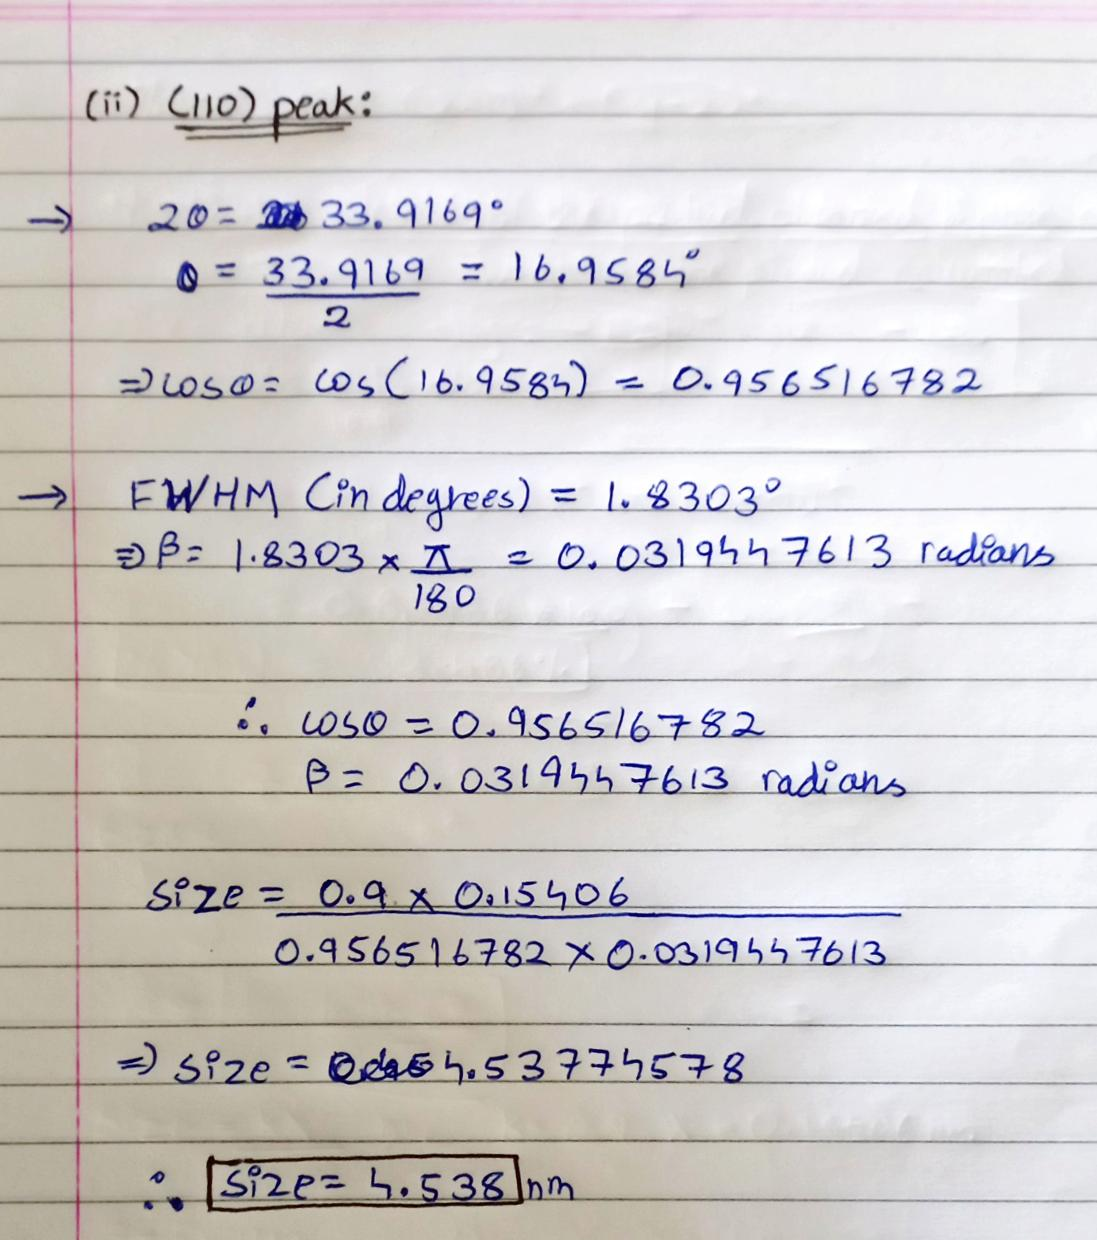 (ii) (110) peak:
→ 2θ = 33.9169°
θ = 33.9169 / 2 = 16.9584°
⇒ cosθ = cos(16.9584) = 0.956516782
→ FWHM (in degrees) = 1.8303°
⇒ β = 1.8303 × π / 180 = 0.0319447613 radians
∴ cosθ = 0.956516782
β = 0.0319447613 radians
size = 0.9 × 0.15406
0.956516782 × 0.0319447613
⇒ size = 4.53774578
∴ size = 4.538 nm